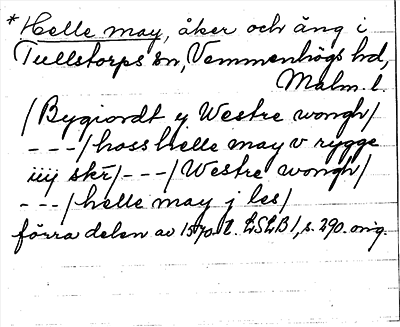 * Helle may, åker och äng i
Tullstorps sn, Vemmenhögs hd,
Malm. l.
/Bygiordt y Westre wongh/
---/hoss helle may v rygge
iiij skr/---/Westre wongh/
---/helle may j les/
förra delen av 1570-t. LSLB 1, s. 290. orig.